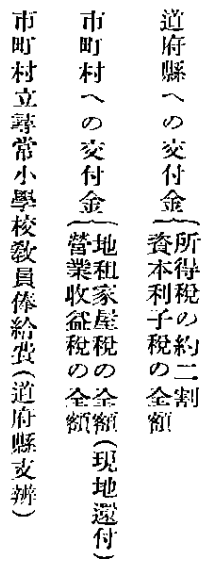 道府縣への交付金{所得稅の約二割
資本利子稅の全額
市町村への交付金{地租家屋稅の全額(現地還付)
營業收益稅の全額
市町村立尋常小學校敎員俸給費(道府縣支辨)